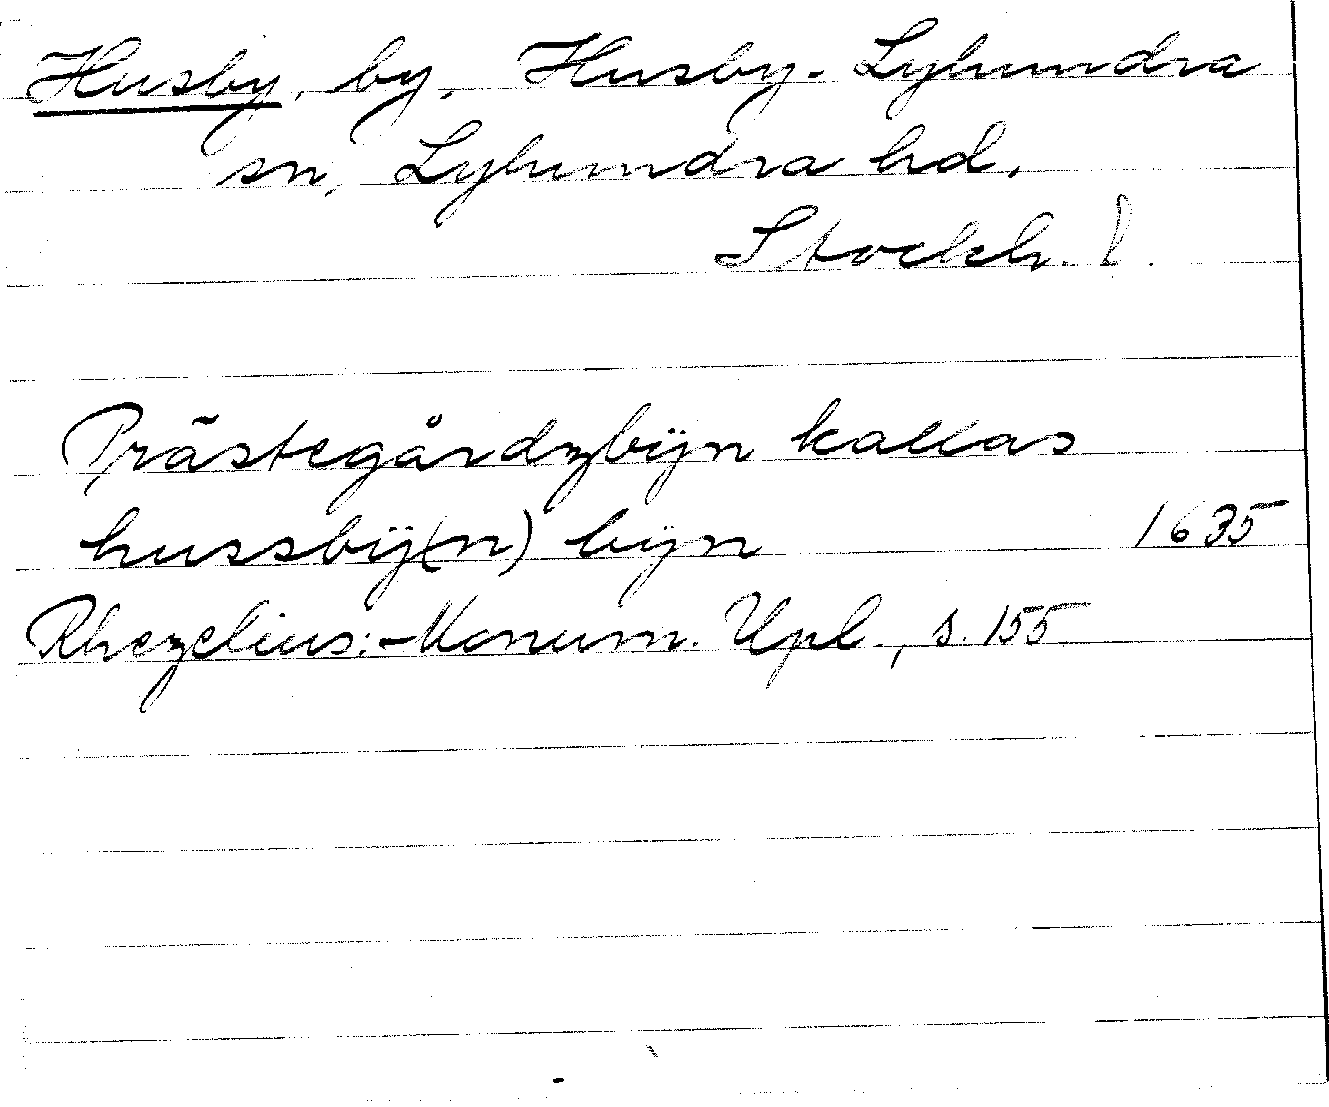 Husby, by, Husby-Lyhundra
sn, Lyhundra hd.
Stockh. l.
Prästegårdzbÿn kallas
hussbÿ(n) bÿn 1635
Rhezelius: Monum. Upl., s. 155